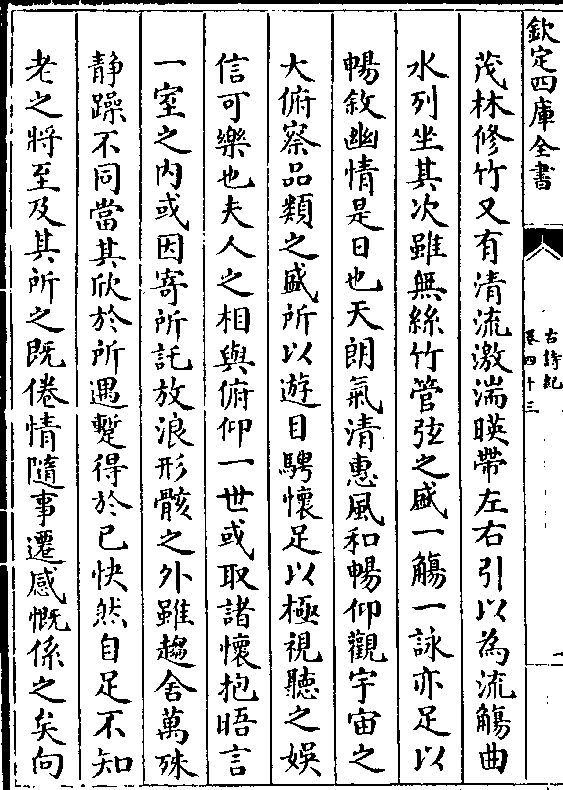 欽定四庫全書
古詩紀
卷四十三
茂林修竹又有清流激湍暎帶左右引以為流觴曲
水列坐其次雖無絲竹管弦之盛一觴一詠亦足以
暢敘幽情是日也天朗氣清惠風和暢仰觀宇宙之
大俯察品類之盛所以遊目騁懷足以極視聽之娛
信可樂也夫人之相與俯仰一世或取諸懷抱晤言
一室之內或因寄所託放浪形骸之外雖趨舍萬殊
静躁不同當其欣於所遇蹔得於已快然自足不知
老之將至及其所之既倦情隨事遷感慨係之矣向